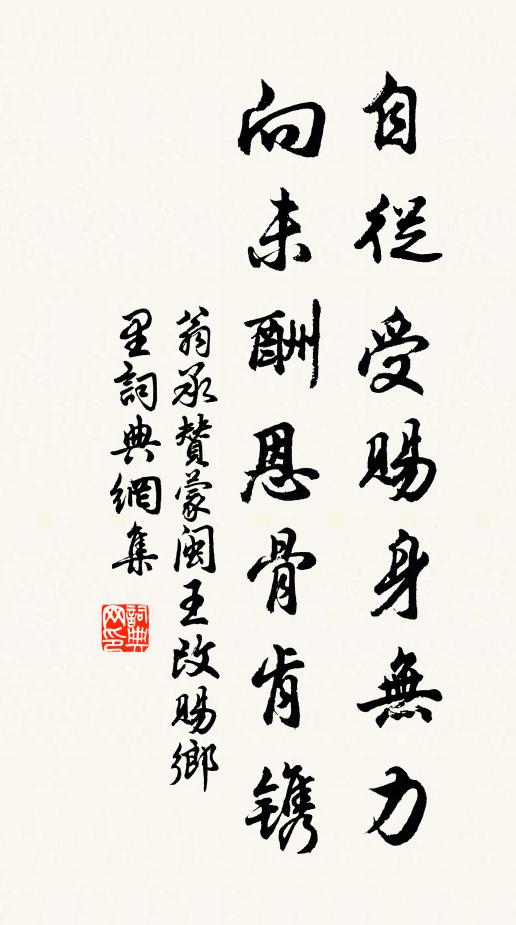 自從受賜身無力
向未酬恩骨肯镌
翁承贊蒙閩王改賜鄉
里詞典網集
詞典
网印